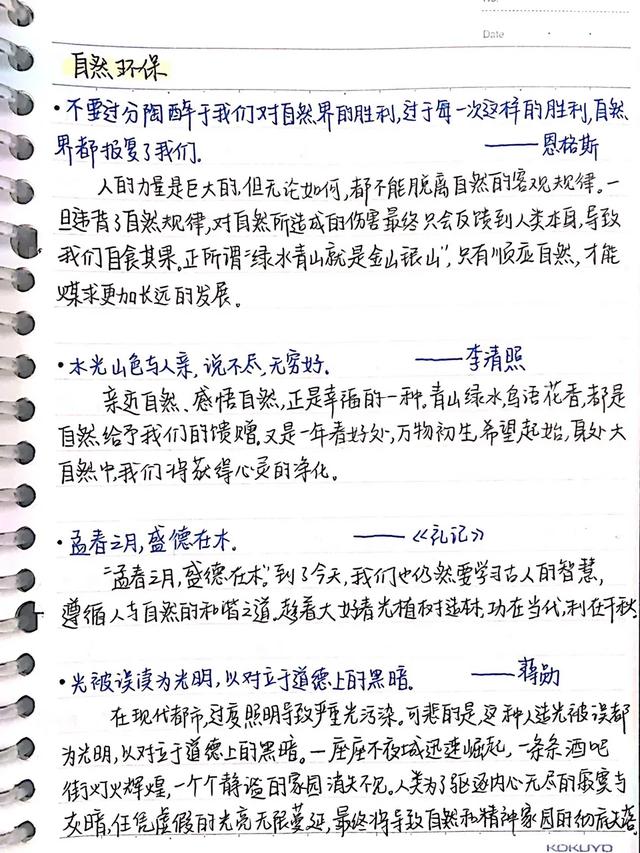 No.
Date
自然环保
·不要过分陶醉于我们对自然界的胜利,过于每一次这样的胜利,自然
界都报复了我们. ——恩格斯
人的力量是巨大的,但无论如何,都不能脱离自然的客观规律.一
旦违背了自然规律,对自然所造成的伤害最终只会反馈到人类本身,导致
我们自食其果.正所谓“绿水青山就是金山银山”,只有顺应自然,才能
谋求更加长远的发展.
·水光山色与人亲,说不尽,无穷好. ——李清照
亲近自然、感悟自然,正是幸福的一种.青山绿水鸟语花香,都是
自然给予我们的馈赠.又是一年春好处,万物初生,希望起始,身处大
自然中,我们将获得心灵的净化.
·孟春之月,盛德在木. ——《礼记》
“孟春之月,盛德在木”到了今天,我们也仍然要学习古人的智慧,
遵循人与自然的和谐之道.趁着大好春光植树造林,功在当代,利在千秋.
·光被误读为光明,以对立于道德上的黑暗. ——蒋勋
在现代都市,过度照明导致严重光污染.可悲的是,这种人造光被误都
为光明,以对立于道德上的黑暗.一座座不夜城迅速崛起,一条条酒吧
街灯火辉煌,一个个静谧的家园消失不见.人类为了驱逐内心无尽的寂寞与
灰暗,任凭虚假的光亮无限蔓延,最终将导致自然和精神家园的彻底失落.
KOKUYO